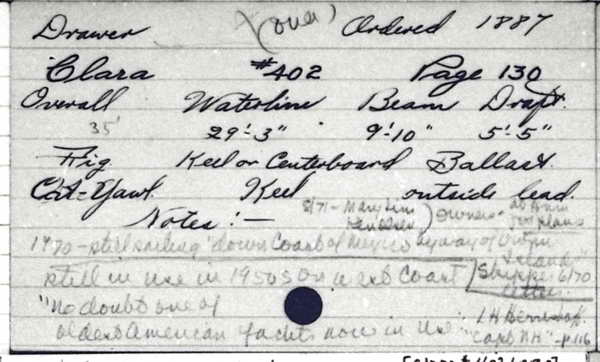 Drawer (over) Ordered 1887
Clara #402 Page 130
Overall Waterline Beam Draft.
35' 29'-3" 9'-10" 5'-5"
Rig Keel or Centerboard Ballast.
Cat-Yawl Keel outside lead.
Notes:- 8/71- Mary Lim owners
1970-still sailing "down Coast of Mexico by way of
Island"
still in use in 1950s on west coast Skipper 6/70
letter
"no doubt one of L H
oldest American yachts now in use" "Capt NH"-p.116